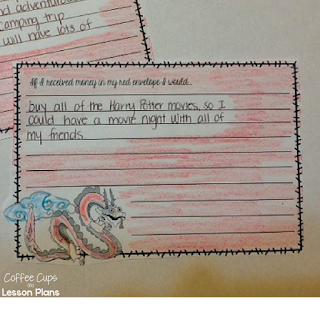 nd adventurou
camping trip
will have lots of
If I received money in my red envelope I would...
buy all of the Harry Potter movies, so I
could have a movie night with all of
my friends.
Coffee Cups
and
Lesson Plans